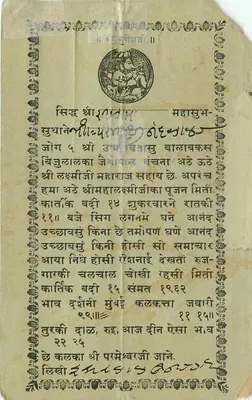 सिद्ध श्री महासुभ-
सुथाने
जोग ५ श्री बालाबकस
बिंजुलालका जैगोपाल बंचना अठे ऊठे
श्री लक्ष्मीजी महाराज सहाय छे. अपरंच
हमा अठे श्रीमहालक्ष्मीजीका पूजन मिती
कार्तिक बदी १४ शुकरवारने रातकी
११॥ बजे सिंग लगनमे घणे आनंद
उच्छावसुं किना छे तमोपण घणे आनंद
उच्छावसुं किनी होसी सो समाचार
आया निंघे होसी ऐंशनाई देखतां रुज-
गारकी चलचाल चोखी रहसी मिती
कार्तिक बदी १५ संमत १९६२
भाव दर्शनी मुंबई कलकत्ता जयारी
११ १५॥
तुरकी दाळ, रुइ, आज दीन ऐसा भ.व
२२ २५
छे कलका श्री परमेश्वरजी जाने.
लिखी